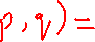 p, q) =